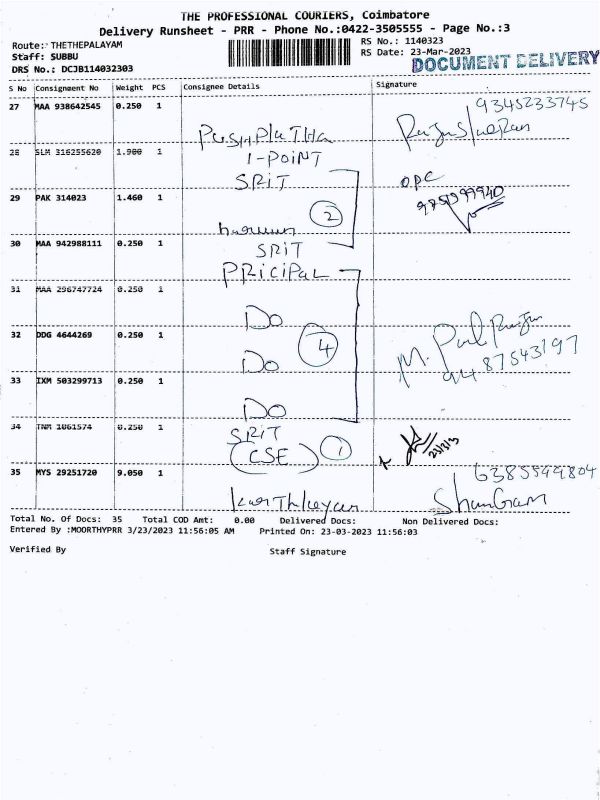 THE PROFESSIONAL COURIERS, Coimbatore
Delivery Runsheet - PRR - Phone No.:0422-3505555 - Page No.:3
Route: THETHEPALAYAM
RS No.: 1140323
Staff: SUBBU
RS Date: 23-Mar-2023
DRS No.: DCJB114032303
DOCUMENT DELIVERY
S No Consignment No Weight PCS Consignee Details Signature
27 MAA 938642545 0.250 1
9345233745
PUSHPLATHA
28 SLM 316255620 1.900 1
1-POINT
SRIT
OPC
29 PAK 314023 1.460 1
2
30 MAA 942988111 0.250 1
SRIT
PRICIPAL
31 MAA 296747724 0.250 1
DO
32 DDG 4644269 0.250 1
4
DO
9487543197
33 IXM 503299713 0.250 1
DO
34 TNM 1061574 0.250 1
SRIT
(CSE) 1
23/3/23
35 MYS 29251720 9.050 1
6385599804
Karthkeyan
Total No. Of Docs: 35 Total COD Amt: 0.00 Delivered Docs: Non Delivered Docs:
Entered By :MOORTHYPRR 3/23/2023 11:56:05 AM Printed On: 23-03-2023 11:56:03
Verified By Staff Signature